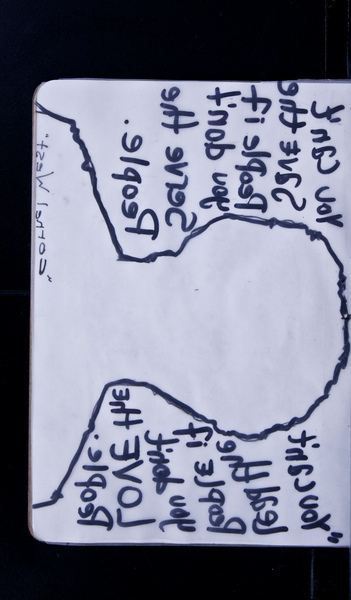 "You can't
lead the
People if
You don't
LOVE the
People.
You can't
Save the
People if
you don't
Serve the
People.
"Cornel West"